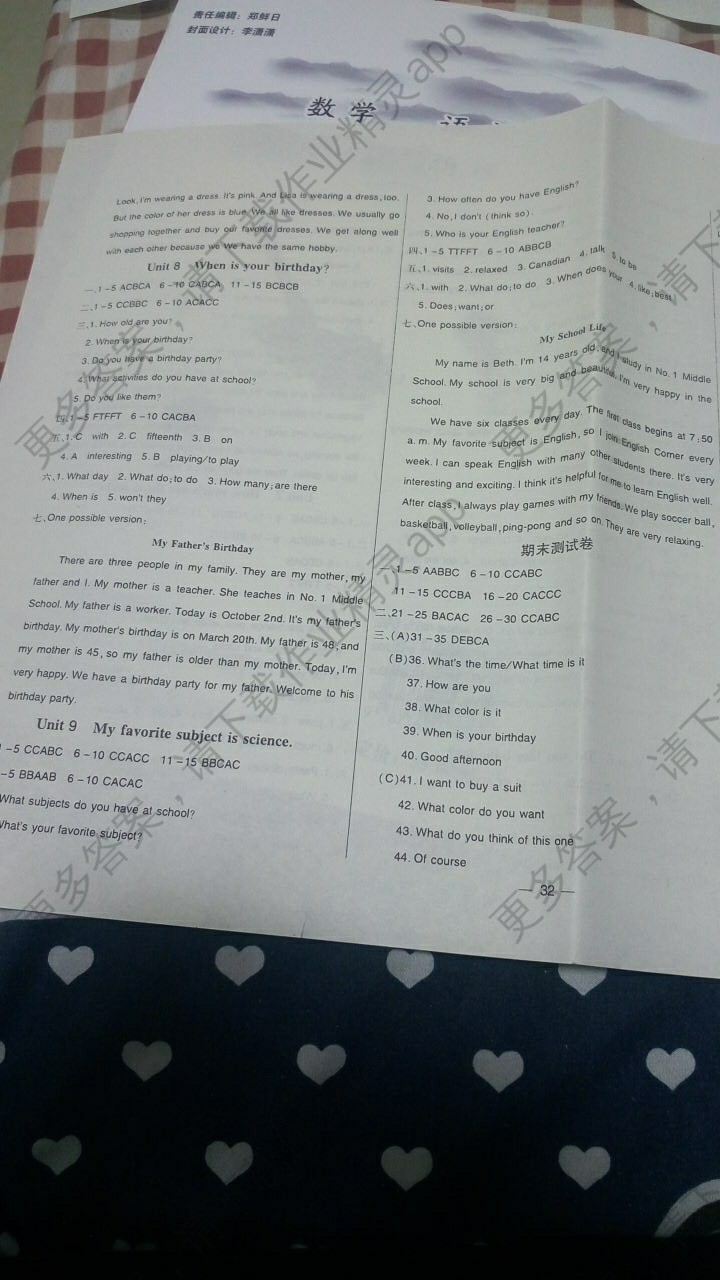 责任编辑：郑鲜日
封面设计：李潇潇
数 学
Look, I'm wearing a dress. It's pink. And Lisa is wearing a dress, too.
But the color of her dress is blue. We all like dresses. We usually go
shopping together and buy our favorite dresses. We get along well
with each other because we We have the same hobby.
Unit 8 When is your birthday?
一、1－5 ACBCA 6－10 CABCA 11－15 BCBCB
二、1－5 CCBBC 6－10 ACACC
三、1. How old are you?
2. When is your birthday?
3. Do you have a birthday party?
4. What activities do you have at school?
5. Do you like them?
四、1－5 FTFFT 6－10 CACBA
五、1. C with 2. C fifteenth 3. B on
4. A interesting 5. B playing/to play
六、1. What day 2. What do; to do 3. How many; are there
4. When is 5. won't they
七、One possible version:
My Father's Birthday
There are three people in my family. They are my mother, my
father and I. My mother is a teacher. She teaches in No. 1 Middle
School. My father is a worker. Today is October 2nd. It's my father's
birthday. My mother's birthday is on March 20th. My father is 48, and
my mother is 45, so my father is older than my mother. Today, I'm
very happy. We have a birthday party for my father. Welcome to his
birthday party.
Unit 9 My favorite subject is science.
－5 CCABC 6－10 CCACC 11－15 BBCAC
－5 BBAAB 6－10 CACAC
What subjects do you have at school?
What's your favorite subject?
3. How often do you have English?
4. No, I don't (think so).
5. Who is your English teacher?
四、1－5 TTFFT 6－10 ABBCB
五、1. visits 2. relaxed 3. Canadian 4. talk 5. to be
六、1. with 2. What do; to do 3. When does your 4. like; best
5. Does; want; or
七、One possible version:
My School Life
My name is Beth. I'm 14 years old, and I study in No. 1 Middle
School. My school is very big and beautiful. I'm very happy in the
school.
We have six classes every day. The first class begins at 7:50
a. m. My favorite subject is English, so I join English Corner every
week. I can speak English with many other students there. It's very
interesting and exciting. I think it's helpful for me to learn English well.
After class, I always play games with my friends. We play soccer ball,
basketball, volleyball, ping-pong and so on. They are very relaxing.
期末测试卷
一、1－5 AABBC 6－10 CCABC
11－15 CCCBA 16－20 CACCC
二、21－25 BACAC 26－30 CCABC
三、(A)31－35 DEBCA
(B)36. What's the time/What time is it
37. How are you
38. What color is it
39. When is your birthday
40. Good afternoon
(C)41. I want to buy a suit
42. What color do you want
43. What do you think of this one
44. Of course
— 32 —
更多答案，请下载作业精灵app
更多答案，请下载作业精灵app
更多答案，请下
更多答案，请下